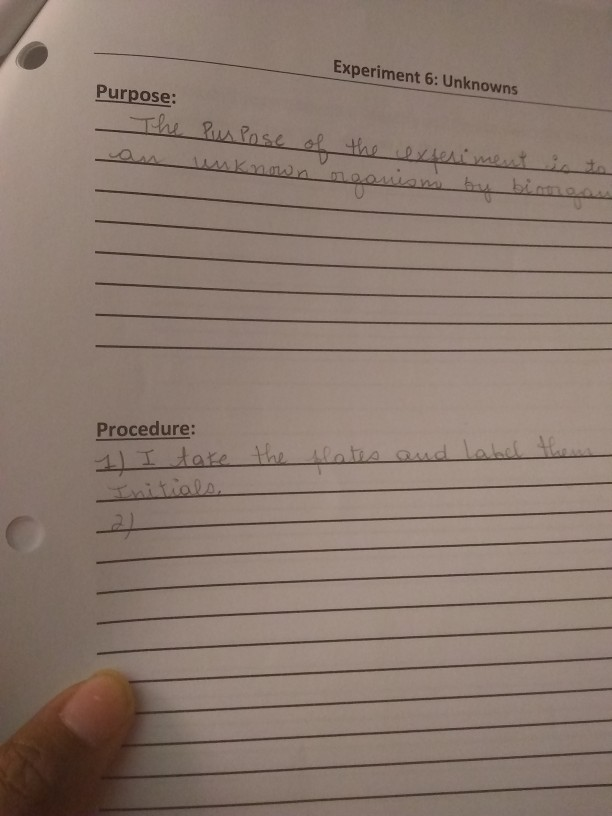 Experiment 6: Unknowns
Purpose:
The Purpose of the experiment is to
an unknown organism by
Procedure:
1) I take the plates and label them
Initials.
2)